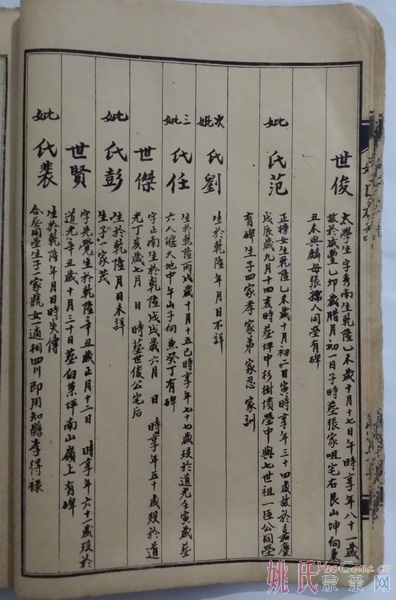 世俊
太學生字秀南生乾隆乙未歲十月十七日午時享年八十一歲
故於咸豐乙卯歲腊月初一日子時塟張家咀宅右艮山坤向兼
丑未與麟母張孺人同塋有碑
妣氏范
正梅女生乾隆乙未歲十月初二日寅時享年三十四歲故於嘉慶
戊辰歲九月十四亥時塟坪中杉樹墳塋中與七世祖一臣公同塋
有碑生子四家孝家弟家忍家訓
次妣氏劉
生於乾隆年月日不詳
三妣氏任
生於乾隆丙戌歲十月十五巳時享年七十七歲歿於道光壬寅歲塟
六人堰天地中午山子向兼癸丁有碑
世傑
字正南生於乾隆戊戌歲六月 日 時享年五十歲歿於道
光丁亥歲七月 日 時塟世俊公宅后
妣氏彭
生於乾隆 月日未詳
生子一家茂
世賢
字先覺生於乾隆辛丑歲正月十二日 時享年六十一歲歿於
道光辛丑歲十月三十日塟白葉坪南山嶺上有碑
妣氏裴
生於乾隆年月日時失傳
合塟同塋生子一家 女一適栩四川即用知縣李得禄
姚氏宗亲网
YaoGens.cn